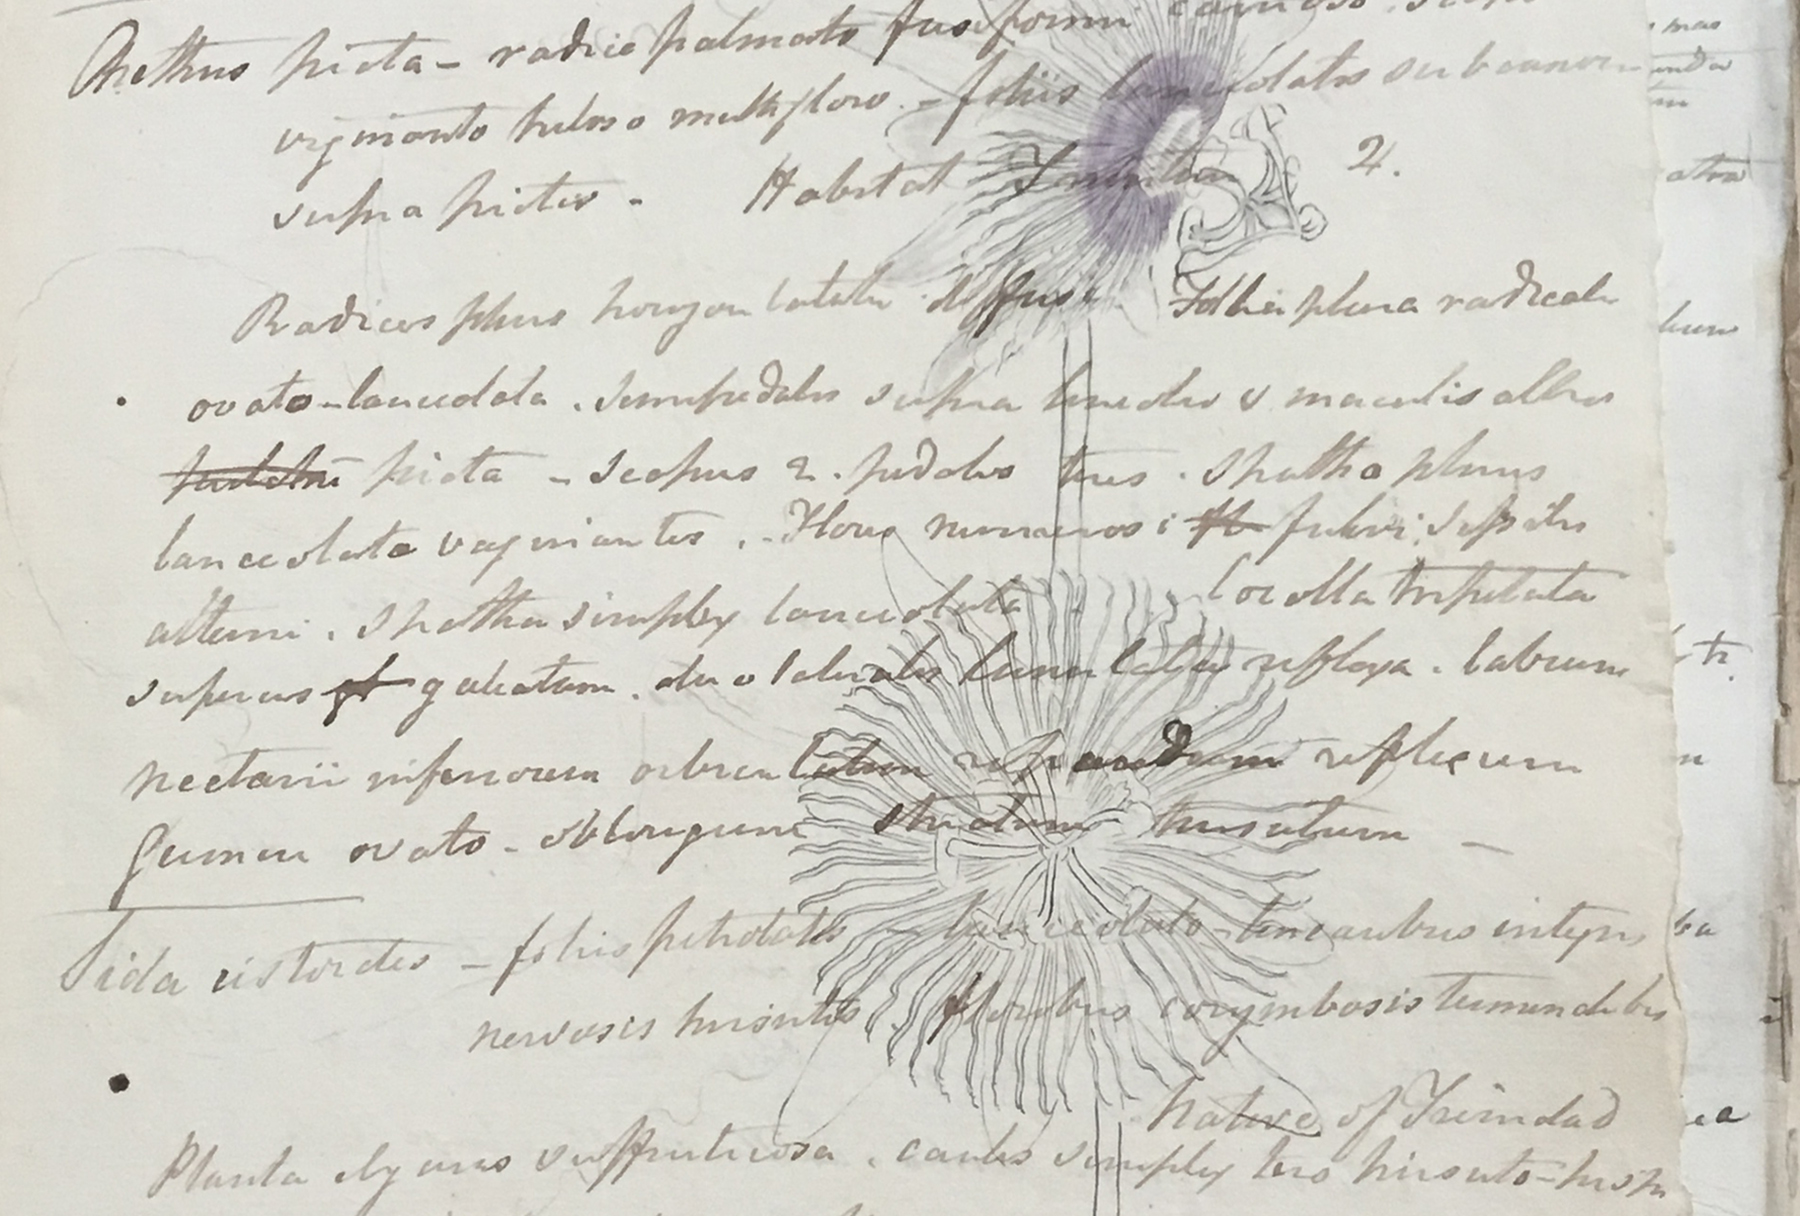 Arethus picta - radice palmato fusiformi carnoso. scapo
vaginanto piloso multifloro. - foliis lanceolatis
supra pictis - Habitat Trinitas 2.
mas
unda
atra
Radices plures horizontaliter diffusi. Folia plura radicalia
lium
ovato-lanceolata. semipedales supra lineolis v. maculis albis
picta - scapus 2. pedales teres. spatha plures
lanceolata vaginantes. - Flores numerosi fulvi, sessiles
alterni. spatha simplex lanceolata Corolla tripetala
superius galeatum. duo lateralis lanceolatis reflexa. labium
tr.
nectarii inferiorum orbiculatum repandum reflexum
Germen ovato-oblongum striatum hirsutum -
Sida cistoides - foliis petiolatis - lanceolato-linearibus integris
nervosis hirsutis. floribus corymbosis terminalibus
Native of Trinidad
Planta elegans suffruticosa. caulis simplex teres hirsuto-hisp